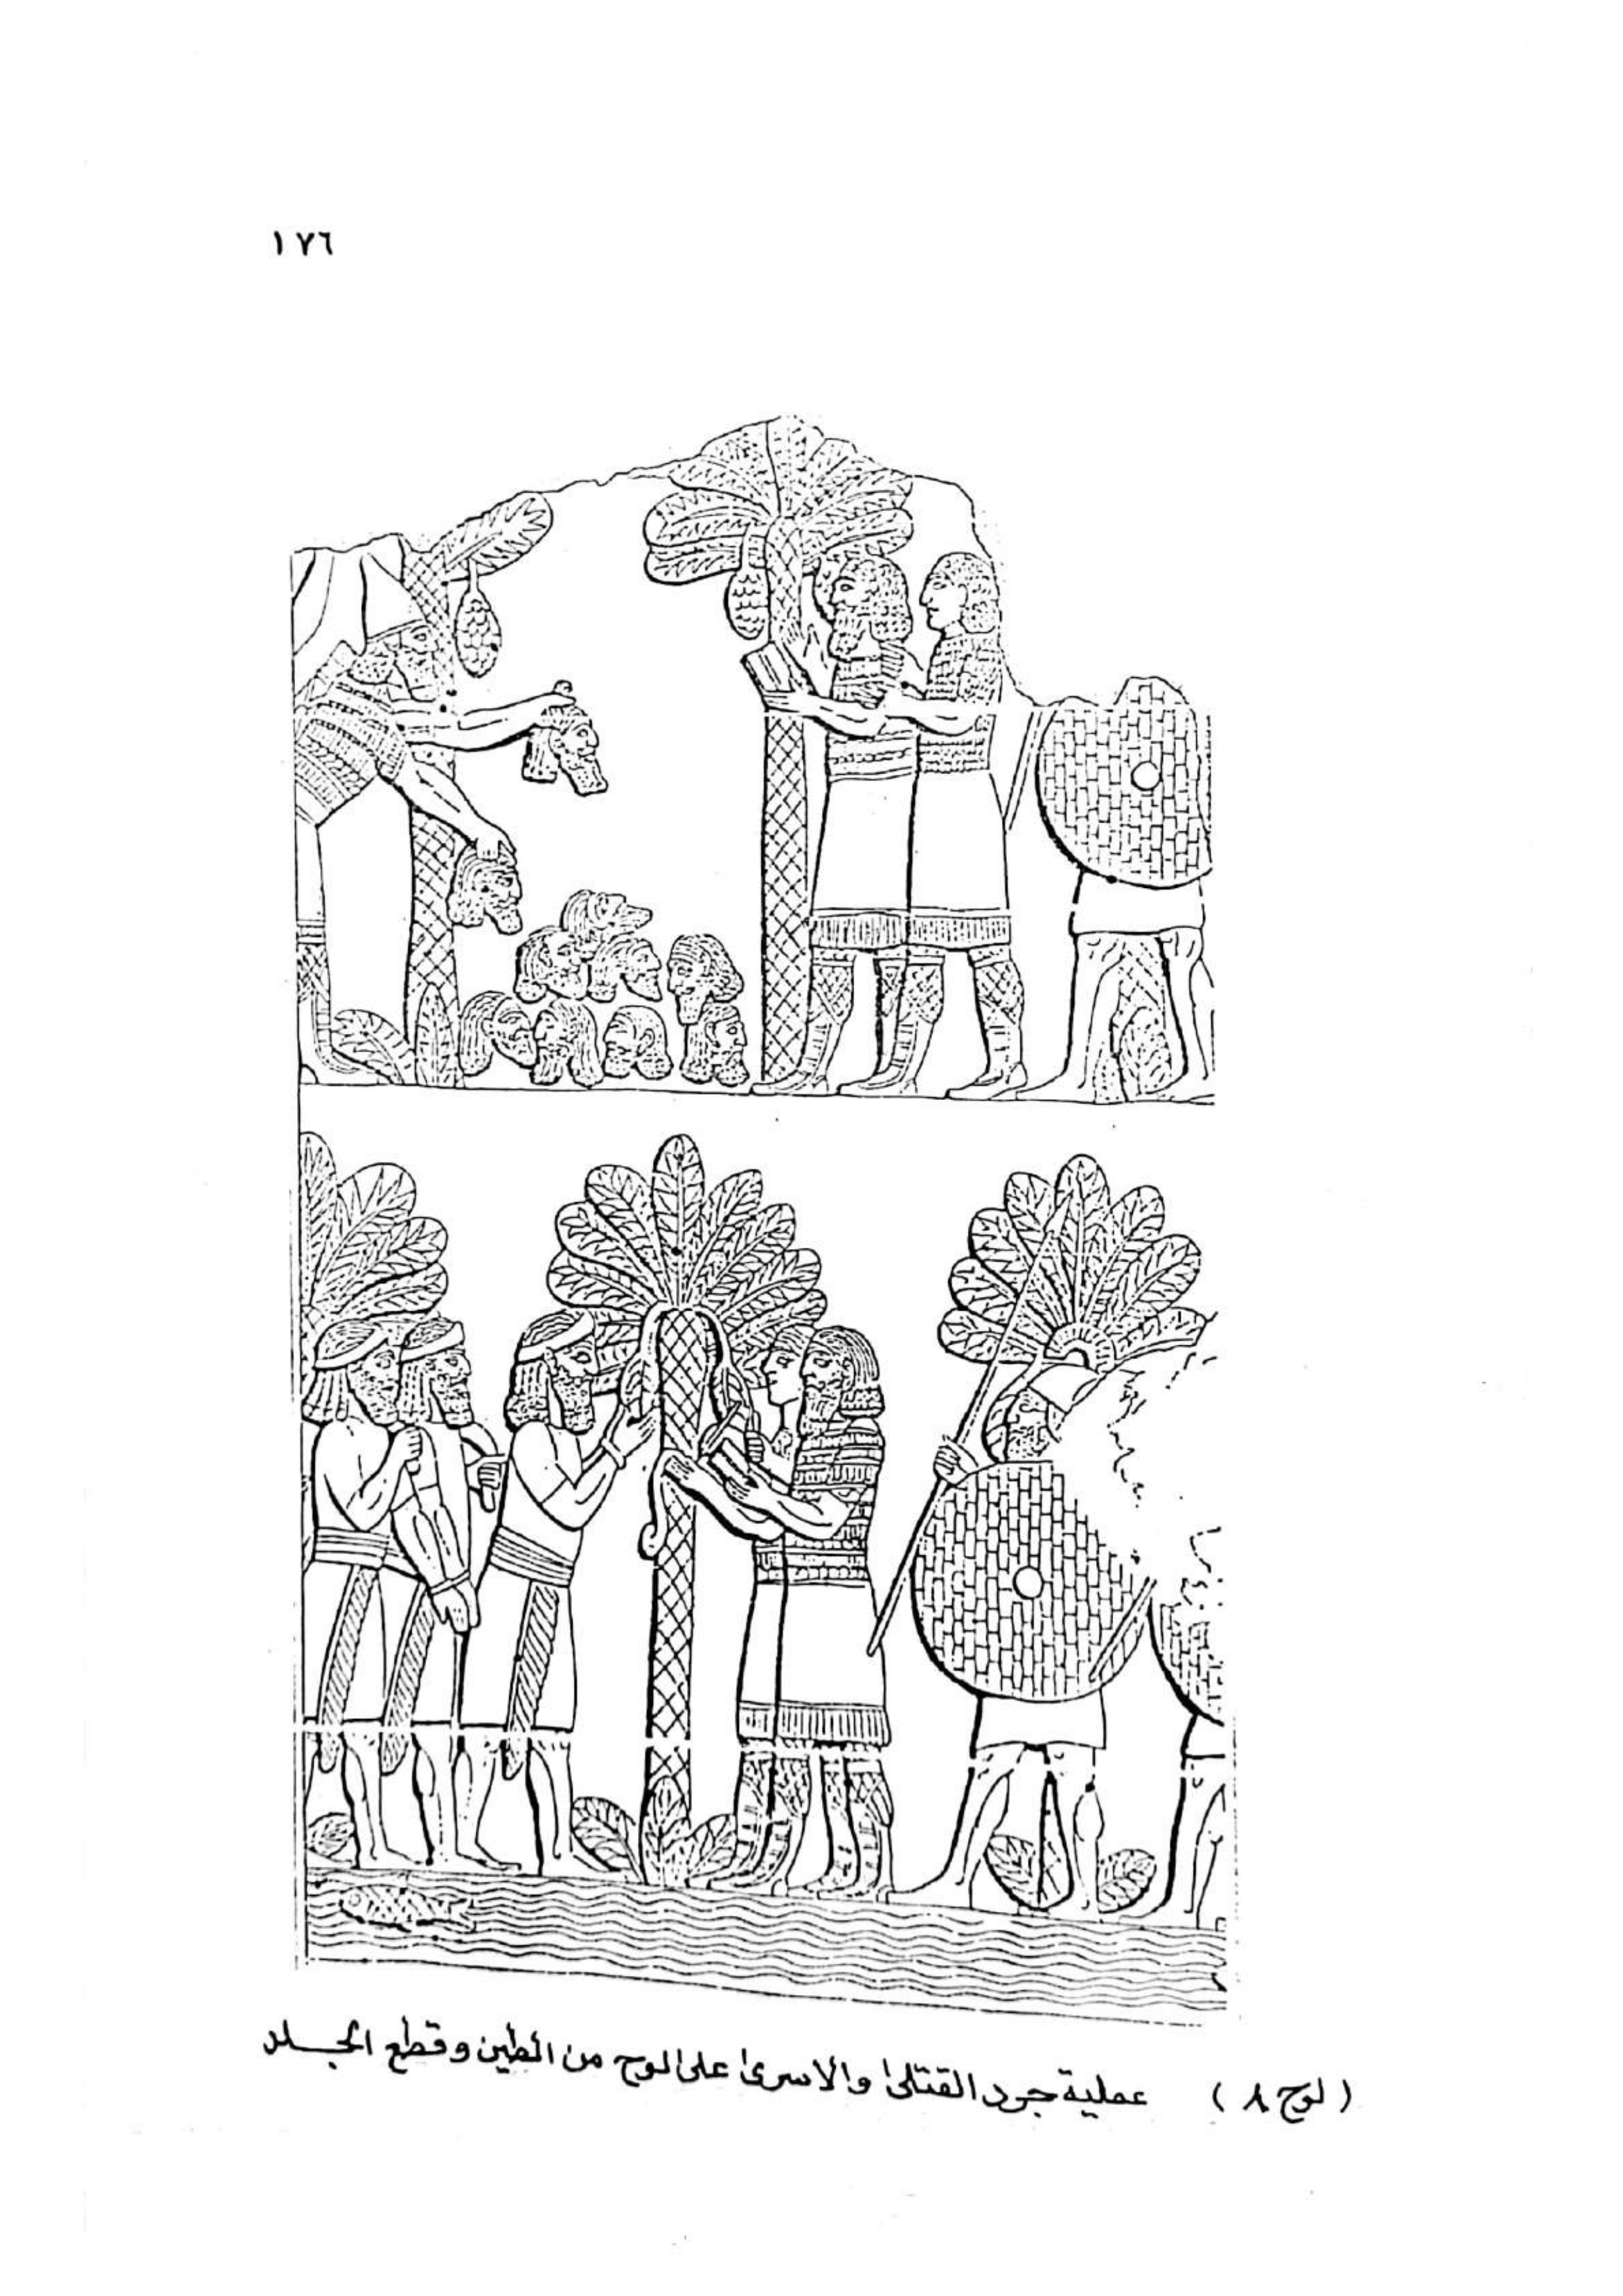 ١٧٦
(لوح ٨) عملية جرد القتلى والاسرى على الوح من الطين وقطع الجلد